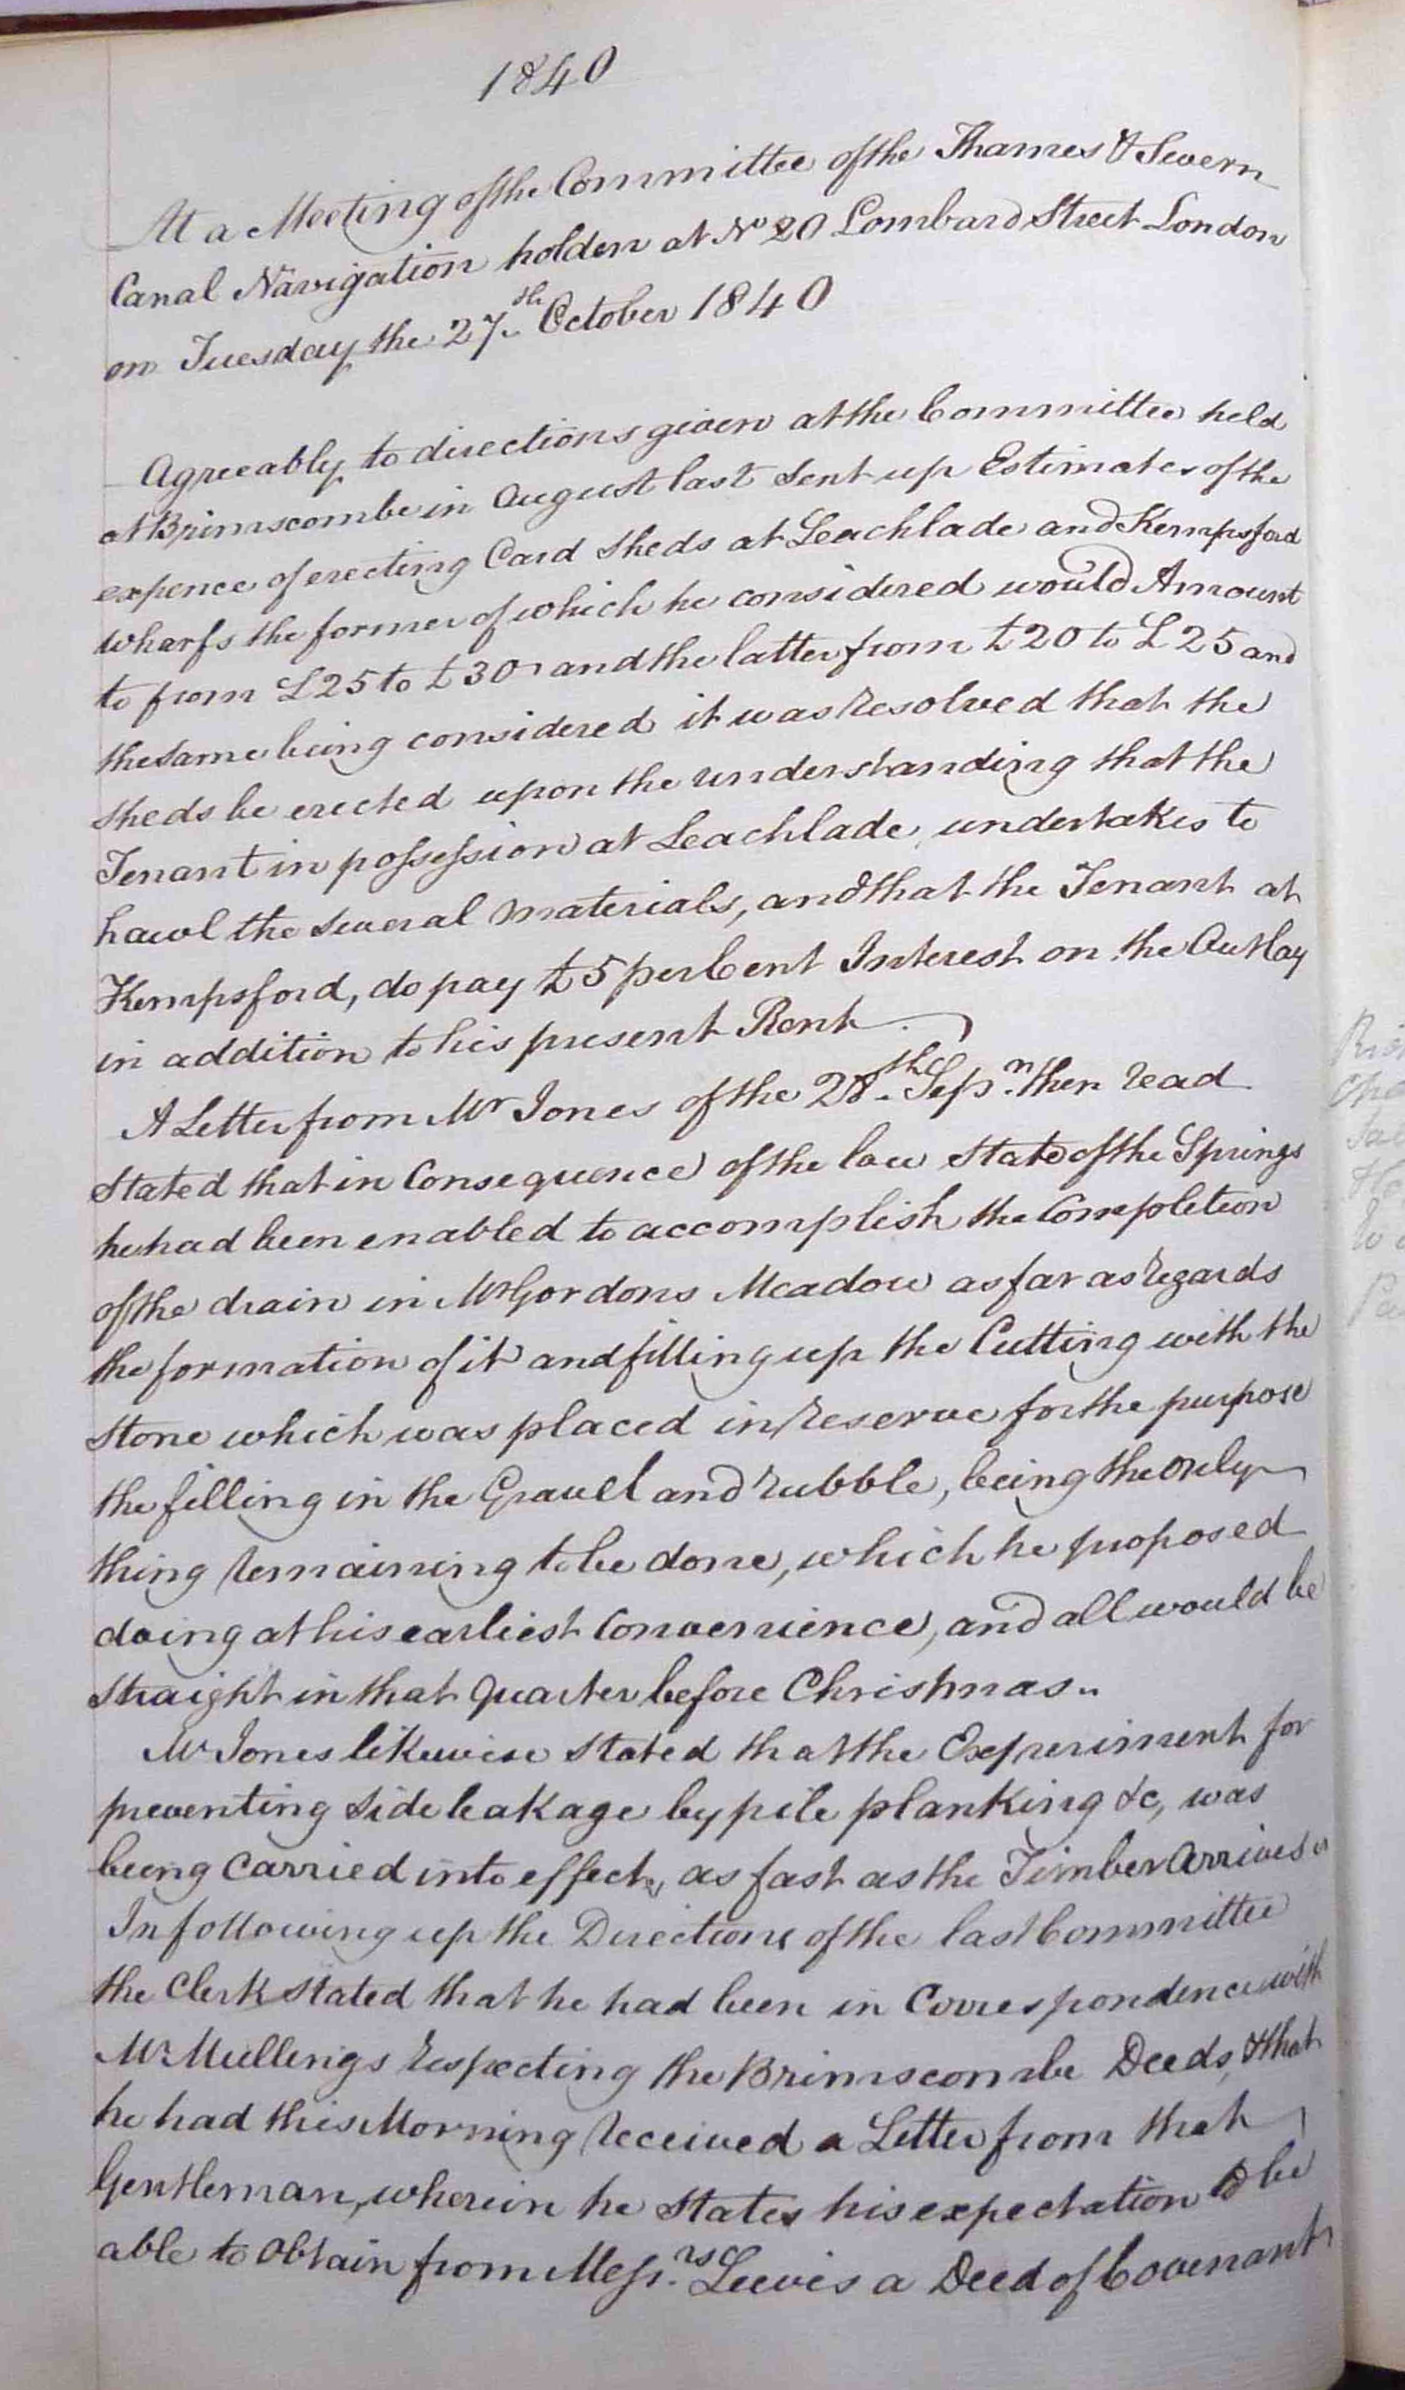 1840
At a Meeting of the Committee of the Thames & Severn
Canal Navigation holden at No 20 Lombard Street London
on Tuesday the 27th October 1840
Agreeably to directions given at the Committee held
at Brimscombe in August last sent up Estimates of the
expence of erecting Card Sheds at Leachlade and Kempsford
Wharfs the former of which he considered would Amount
to from £25 to £30 and the latter from £20 to £25 and
the same being considered it was resolved that the
Sheds be erected upon the understanding that the
Tenant in possession at Leachlade, undertakes to
hawl the several Materials, and that the Tenant at
Kempsford, do pay £5 per Cent Interest on the Outlay
in addition to his present Rent
A Letter from Mr Jones of the 28th Sepr then read
stated that in Consequence of the low State of the Springs
he had been enabled to accomplish the Completion
of the drain in Mr Gordons Meadow as far as regards
the formation of it and filling up the Cutting with the
Stone which was placed in reserve for the purpose
the filling in the Gravel and rubble, being the only
thing remaining to be done, which he proposed
doing at his earliest Convenience, and all would be
straight in that quarter before Christmas..
Mr Jones likewise stated that the Experiment for
preventing side leakage by pile planking &c, was
being Carried into effect, as fast as the Timber Arrives
In following up the Directions of the last Committee
the Clerk stated that he had been in Correspondence with
Mr Mullengs respecting the Brimscombe Deeds, & that
he had this Morning received a Letter from that
Gentleman, wherein he states his expectation to be
able to Obtain from Messrs Lewis a Deed of Covenant